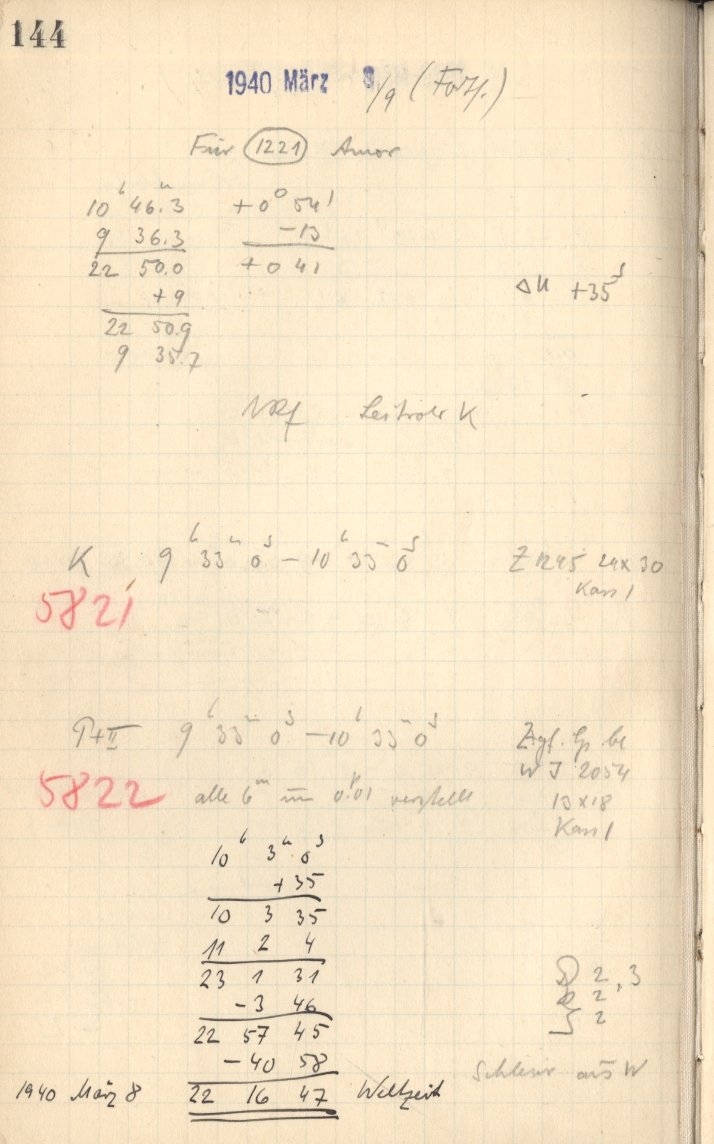 144
1940 März 8/9 (Forts.)
Für 1221 Amor
10ʰ 46ᵐ.3 +0° 54'
9 36.3 -13
22 50.0 +0 41
+9
22 50.9
9 35.7
ΔU +35ˢ
Leitrohr K
K 9ʰ 33ᵐ 0ˢ – 10ʰ 33ᵐ 0ˢ
24 x 30
Kass 1
5821
9ʰ 33ᵐ 0ˢ – 10ʰ 33ᵐ 0ˢ
5822 alle 6ᵐ um 0.01 verstellt
13 x 18
Kass 1
10ʰ 3ᵐ 0ˢ
+35
10 3 35
11 2 4
23 1 31
-3 46
22 57 45
-40 58
1940 März 8 22 16 47 Weltzeit
2,3
2
2
Schleier aus W